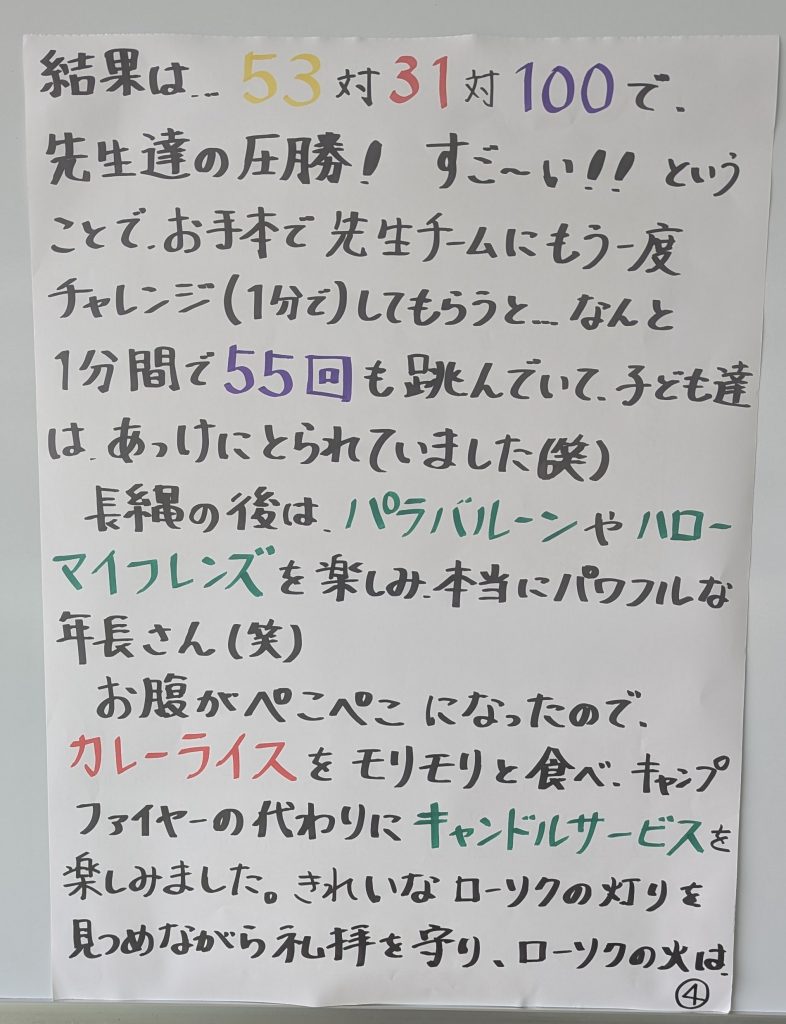 結果は… 53対31対100で、
先生達の圧勝! すご〜い!! という
ことで、お手本で先生チームにもう一度
チャレンジ(1分で)してもらうと… なんと
1分間で55回も跳んでいて、子ども達
は、あっけにとられていました(笑)
長縄の後は、パラバルーンやハロー
マイフレンズを楽しみ、本当にパワフルな
年長さん(笑)
お腹がぺこぺこになったので、
カレーライスをモリモリと食べ、キャンプ
ファイヤーの代わりにキャンドルサービスを
楽しみました。きれいなローソクの灯りを
見つめながら礼拝を守り、ローソクの火は、
④